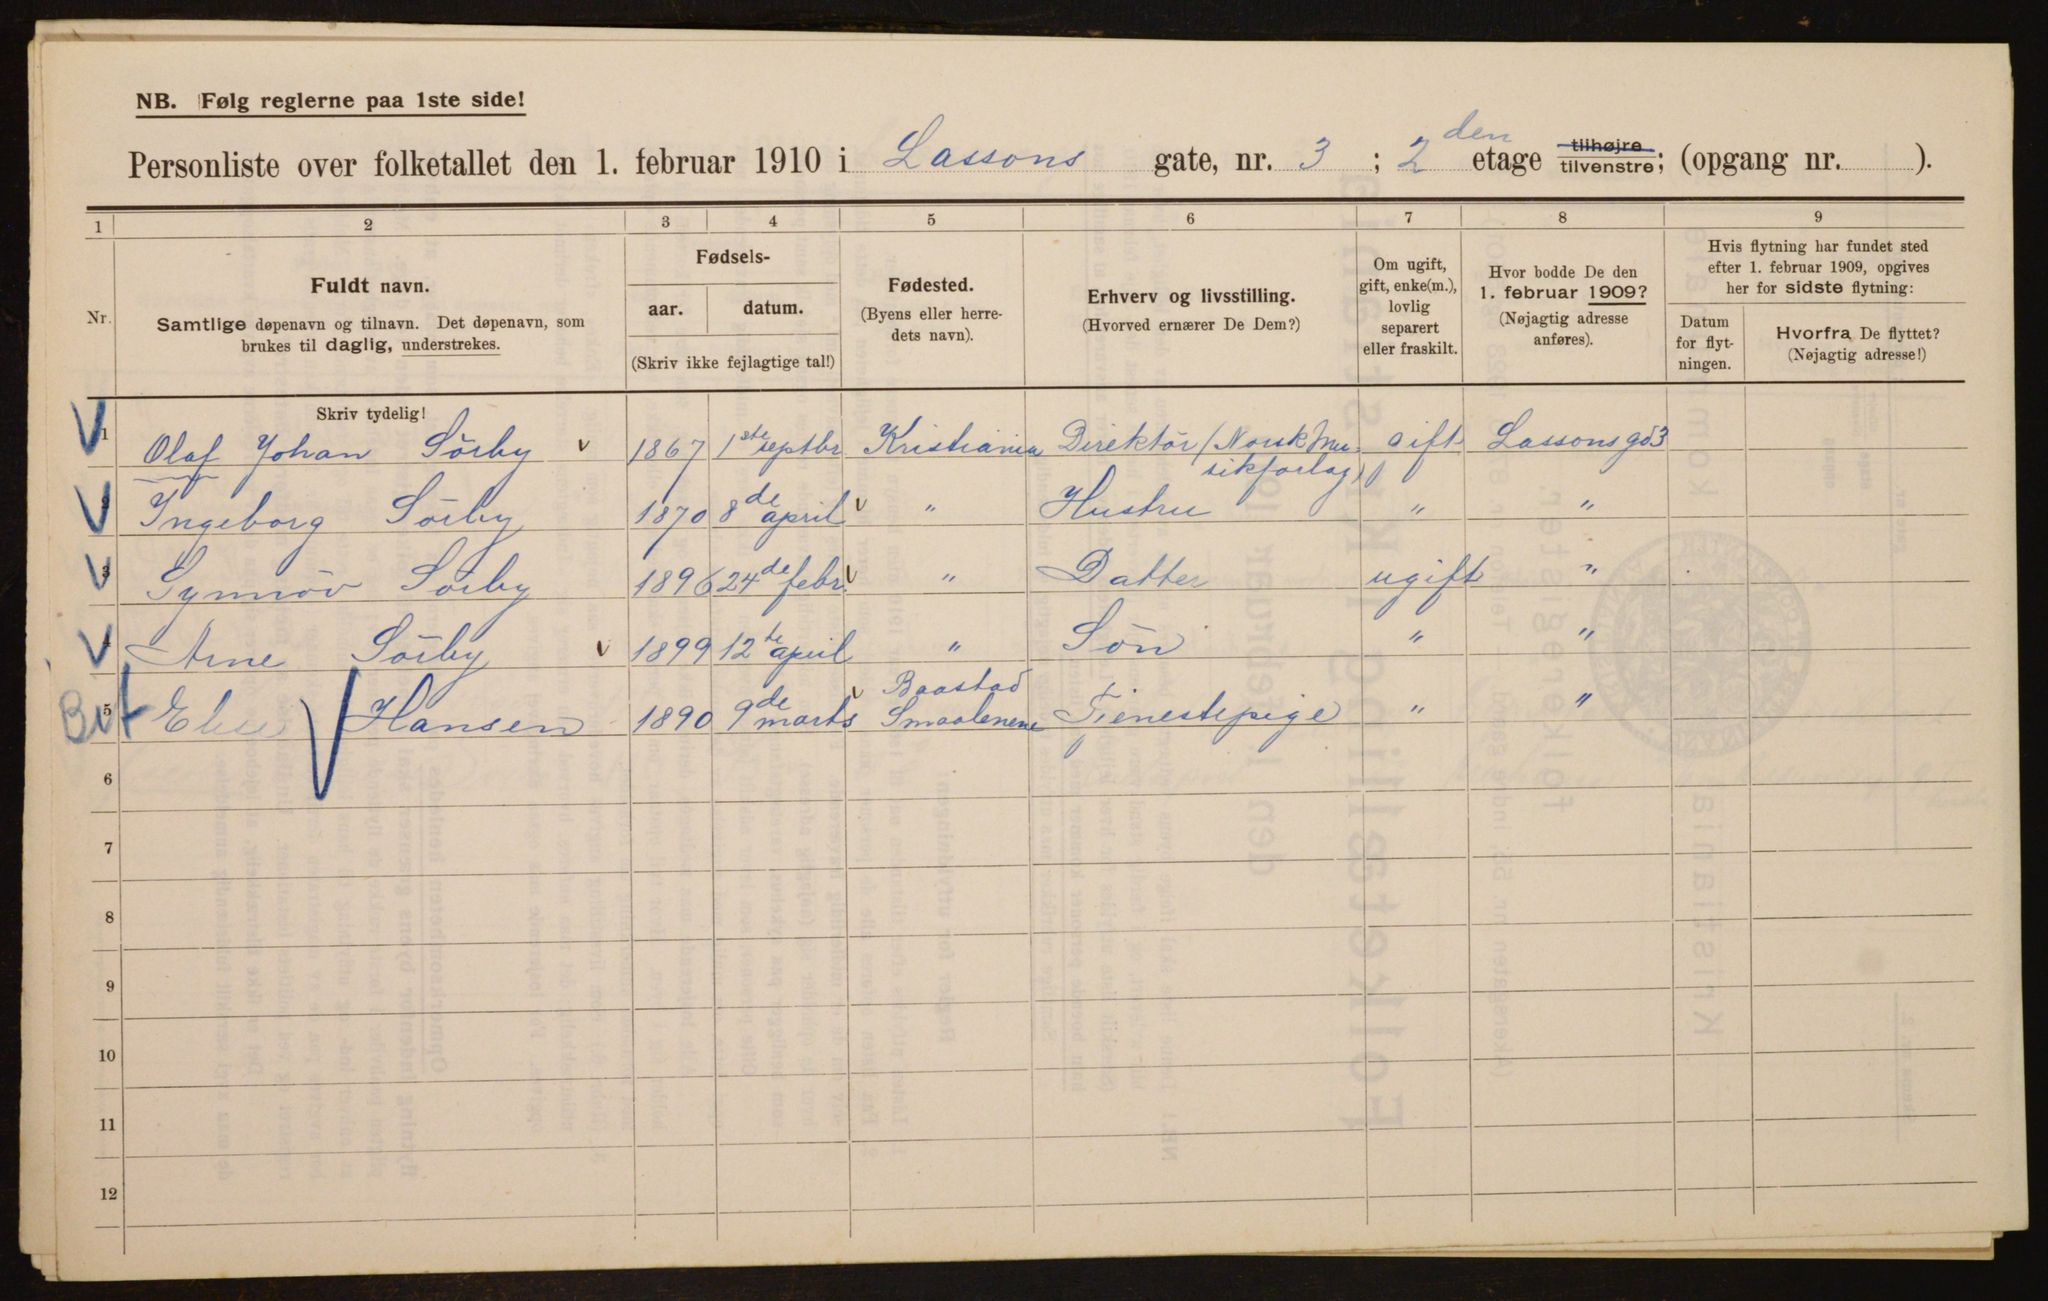 NB. Følg reglerne paa 1ste side!
Personliste over folketallet den 1. februar 1910 i Lassons gate, nr. 3 ; 2den etage tilhøjre tilvenstre; (opgang nr. ).
1 2 3 4 5 6 7 8 9
Nr.
Fuldt navn.
Samtlige døpenavn og tilnavn. Det døpenavn, som
brukes til daglig, understrekes.
Fødsels-
aar. datum.
(Skriv ikke fejlagtige tal!)
Fødested.
(Byens eller herre-
dets navn).
Erhverv og livsstilling.
(Hvorved ernærer De Dem?)
Om ugift,
gift, enke(m.),
lovlig
separert
eller fraskilt.
Hvor bodde De den
1. februar 1909?
(Nøjagtig adresse
anføres).
Hvis flytning har fundet sted
efter 1. februar 1909, opgives
her for sidste flytning:
Datum
for flyt-
ningen.
Hvorfra De flyttet?
(Nøjagtig adresse!)
Skriv tydelig!
1 Olaf Johan Sörby 1867 1ste septbr Kristiania Direktör (Norsk Mu-
sikforlag) gift Lassons gd 3
2 Ingeborg Sörby 1870 8de april " Hustru " "
3 Synnöv Sörby 1896 24de febr. " Datter ugift "
4 Arne Sörby 1899 12te april " Sön " "
But 5 Else Hansen 1890 9de marts Baastad
Smaalenene Tjenestepige " "
6
7
8
9
10
11
12